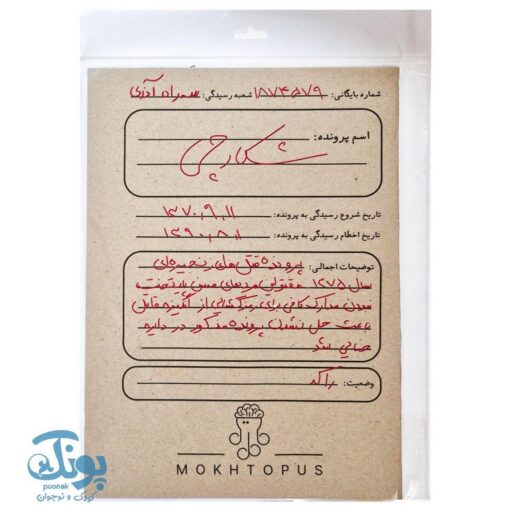 شماره بایگانی: ۱۸۷۴۵۷۹ شعبه رسیدگی: سهراه آذری
اسم پرونده:
شکارچی
تاریخ شروع رسیدگی به پرونده: ۱۳۷۰,۹,۱۱
تاریخ اختتام رسیدگی به پرونده: ۱۳۹۰,۸,۱
توضیحات اجمالی: پرونده قتل های زنجیره ای
سال ۱۳۷۵ مقتولین مردهای مسن پایتخت
نبودن مدارک کافی برای رمزگشایی از انگیزه قاتل
باعث حل نشدن پرونده مذکور در دایره
جنایی شد
وضعیت: راکد
MOKHTOPUS
پونک
puonak
کودک و نوجوان